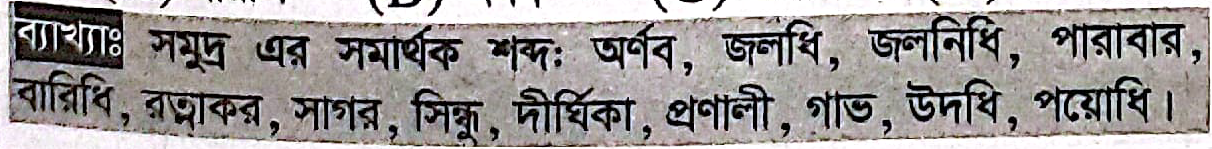 ব্যাখ্যাঃ সমুদ্র এর সমার্থক শব্দ: অর্ণব, জলধি, জলনিধি, পারাবার,
বারিধি, রত্নাকর, সাগর, সিন্ধু, দীর্ঘিকা, প্রণালী, গাভ, উদধি, পয়োধি।